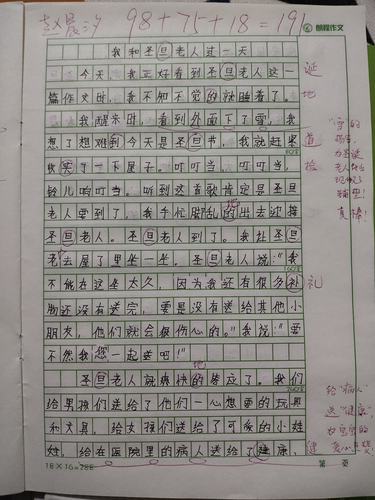 赵晨汐 98+75+18=191 朗程作文
我和圣旦老人过一天
今天，我正好看到圣旦老人这一
篇作文时，我不知不觉的就睡着了。
我醒来时，看到外面下了雪，我
想了想难到今天是圣旦节，我就赶紧
收实了一下屋子。叮叮当，叮叮当，
铃儿响叮当。听到这首歌肯定是圣旦
老人要到了，我手忙脚乱的出去迎接
地
圣旦老人。圣旦老人到了。我让圣旦
老去屋了里坐一坐，圣旦老人说："我
不能在这坐太久，因为我还有很多礼
物还没有送完，要是没有送给其他小
朋友，他们就会很伤心的。"我说："要
不然我您一起送吧！"
地
圣旦老人就爽快的答应了。我们
给男孩们送给了他们一心想要的玩具
和文具，给女孩们送给了可爱的小娃
娃，给在医院里的病人送给了健康，
诞
地
道
捡
礼
健
"雪"的
为圣诞
老人
真棒！
给"病人"
送"健康"，
18×16=288
第 页